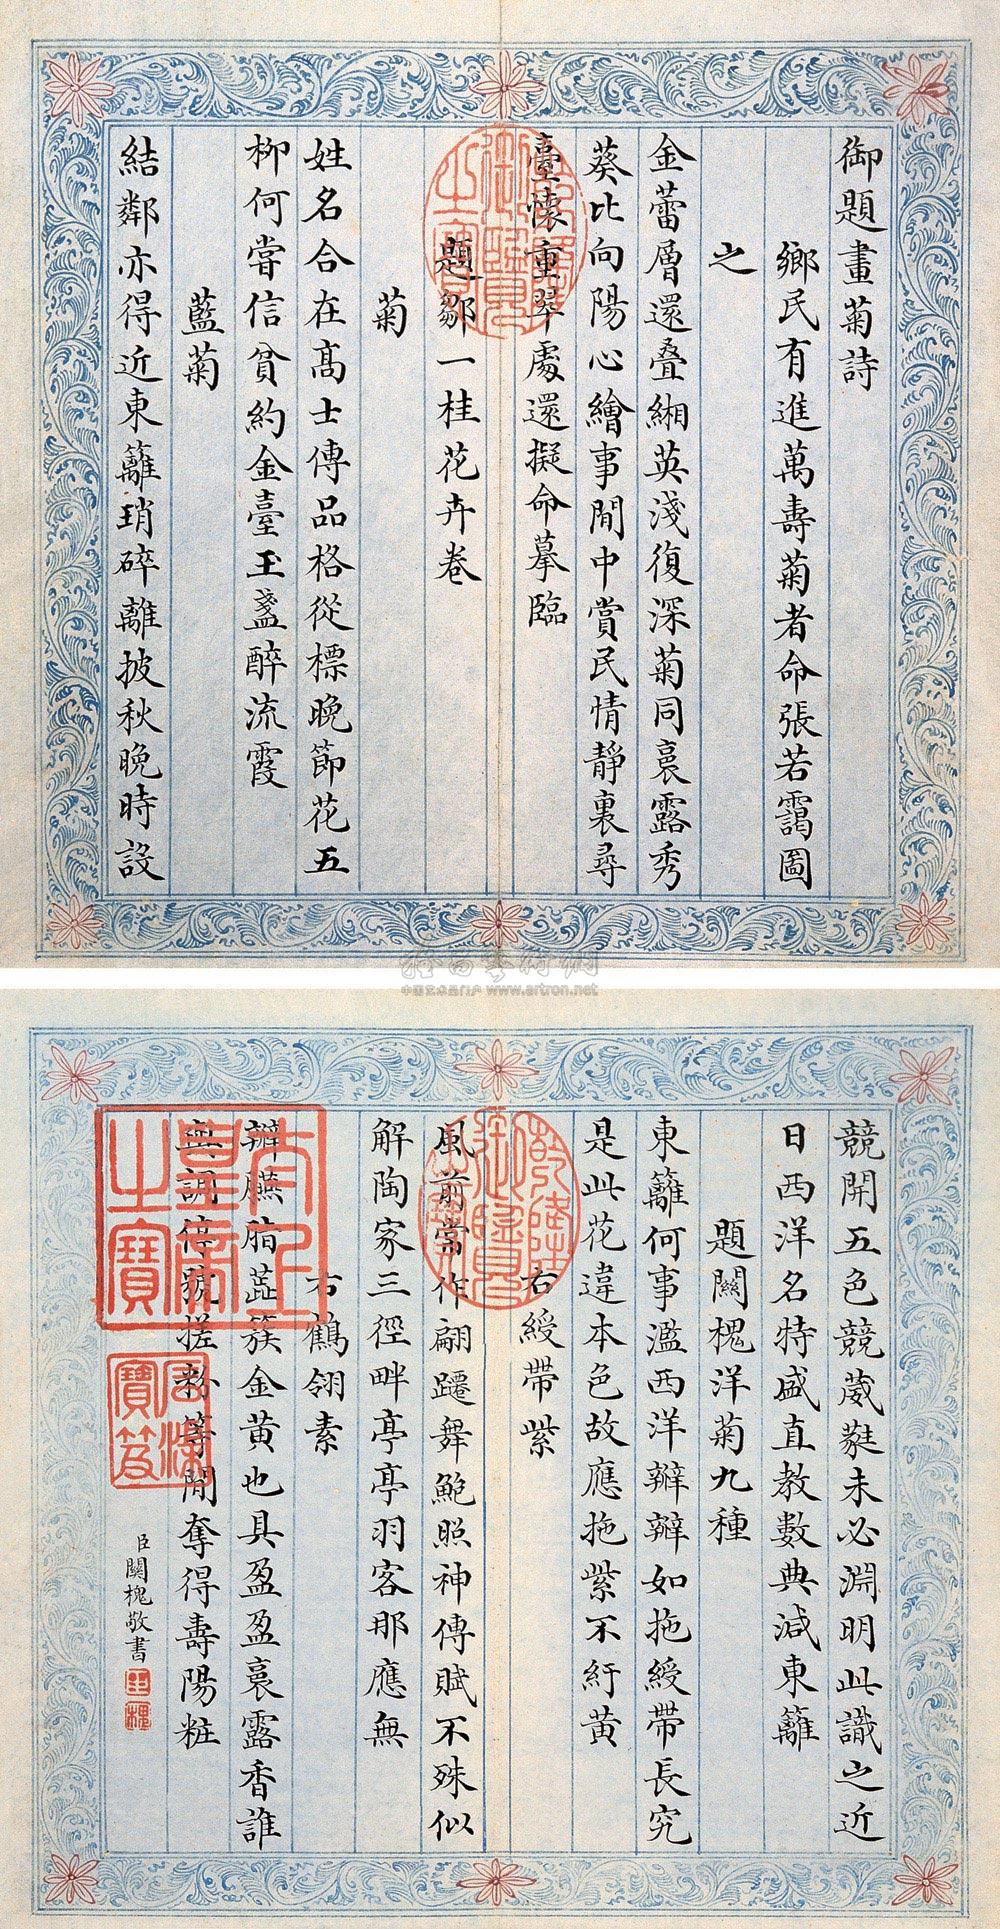 御題畫菊詩
鄉民有進萬壽菊者命張若靄圖
之
金蕾層還叠緗英淺復深菊同裛露秀
葵比向陽心繪事閒中賞民情靜裏尋
臺懷重翠處還擬命摹臨
題鄒一桂花卉卷
菊
姓名合在高士傳品格從標晚節花五
柳何嘗信貧約金臺玉盞醉流霞
藍菊
結鄰亦得近東籬瑣碎離披秋晚時設
乾隆御覽之寶
中国艺术品门户 www.artron.net
競開五色競葳蕤未必淵明此識之近
日西洋名特盛直教數典減東籬
題關槐洋菊九種
東籬何事濫西洋辦辦如拖綬帶長究
是此花違本色故應拖紫不紆黃
右綬帶紫
風前常作翩躚舞鮑照神傳賦不殊似
解陶家三徑畔亭亭羽客那應無
右鶴翎素
辦臙脂蕋簇金黃也具盈盈裛露香誰
與調停號搓粉等閒奪得壽陽粧
臣關槐敬書
臣
槐
乾隆御覽之寶
太上皇帝之寶
寶笈